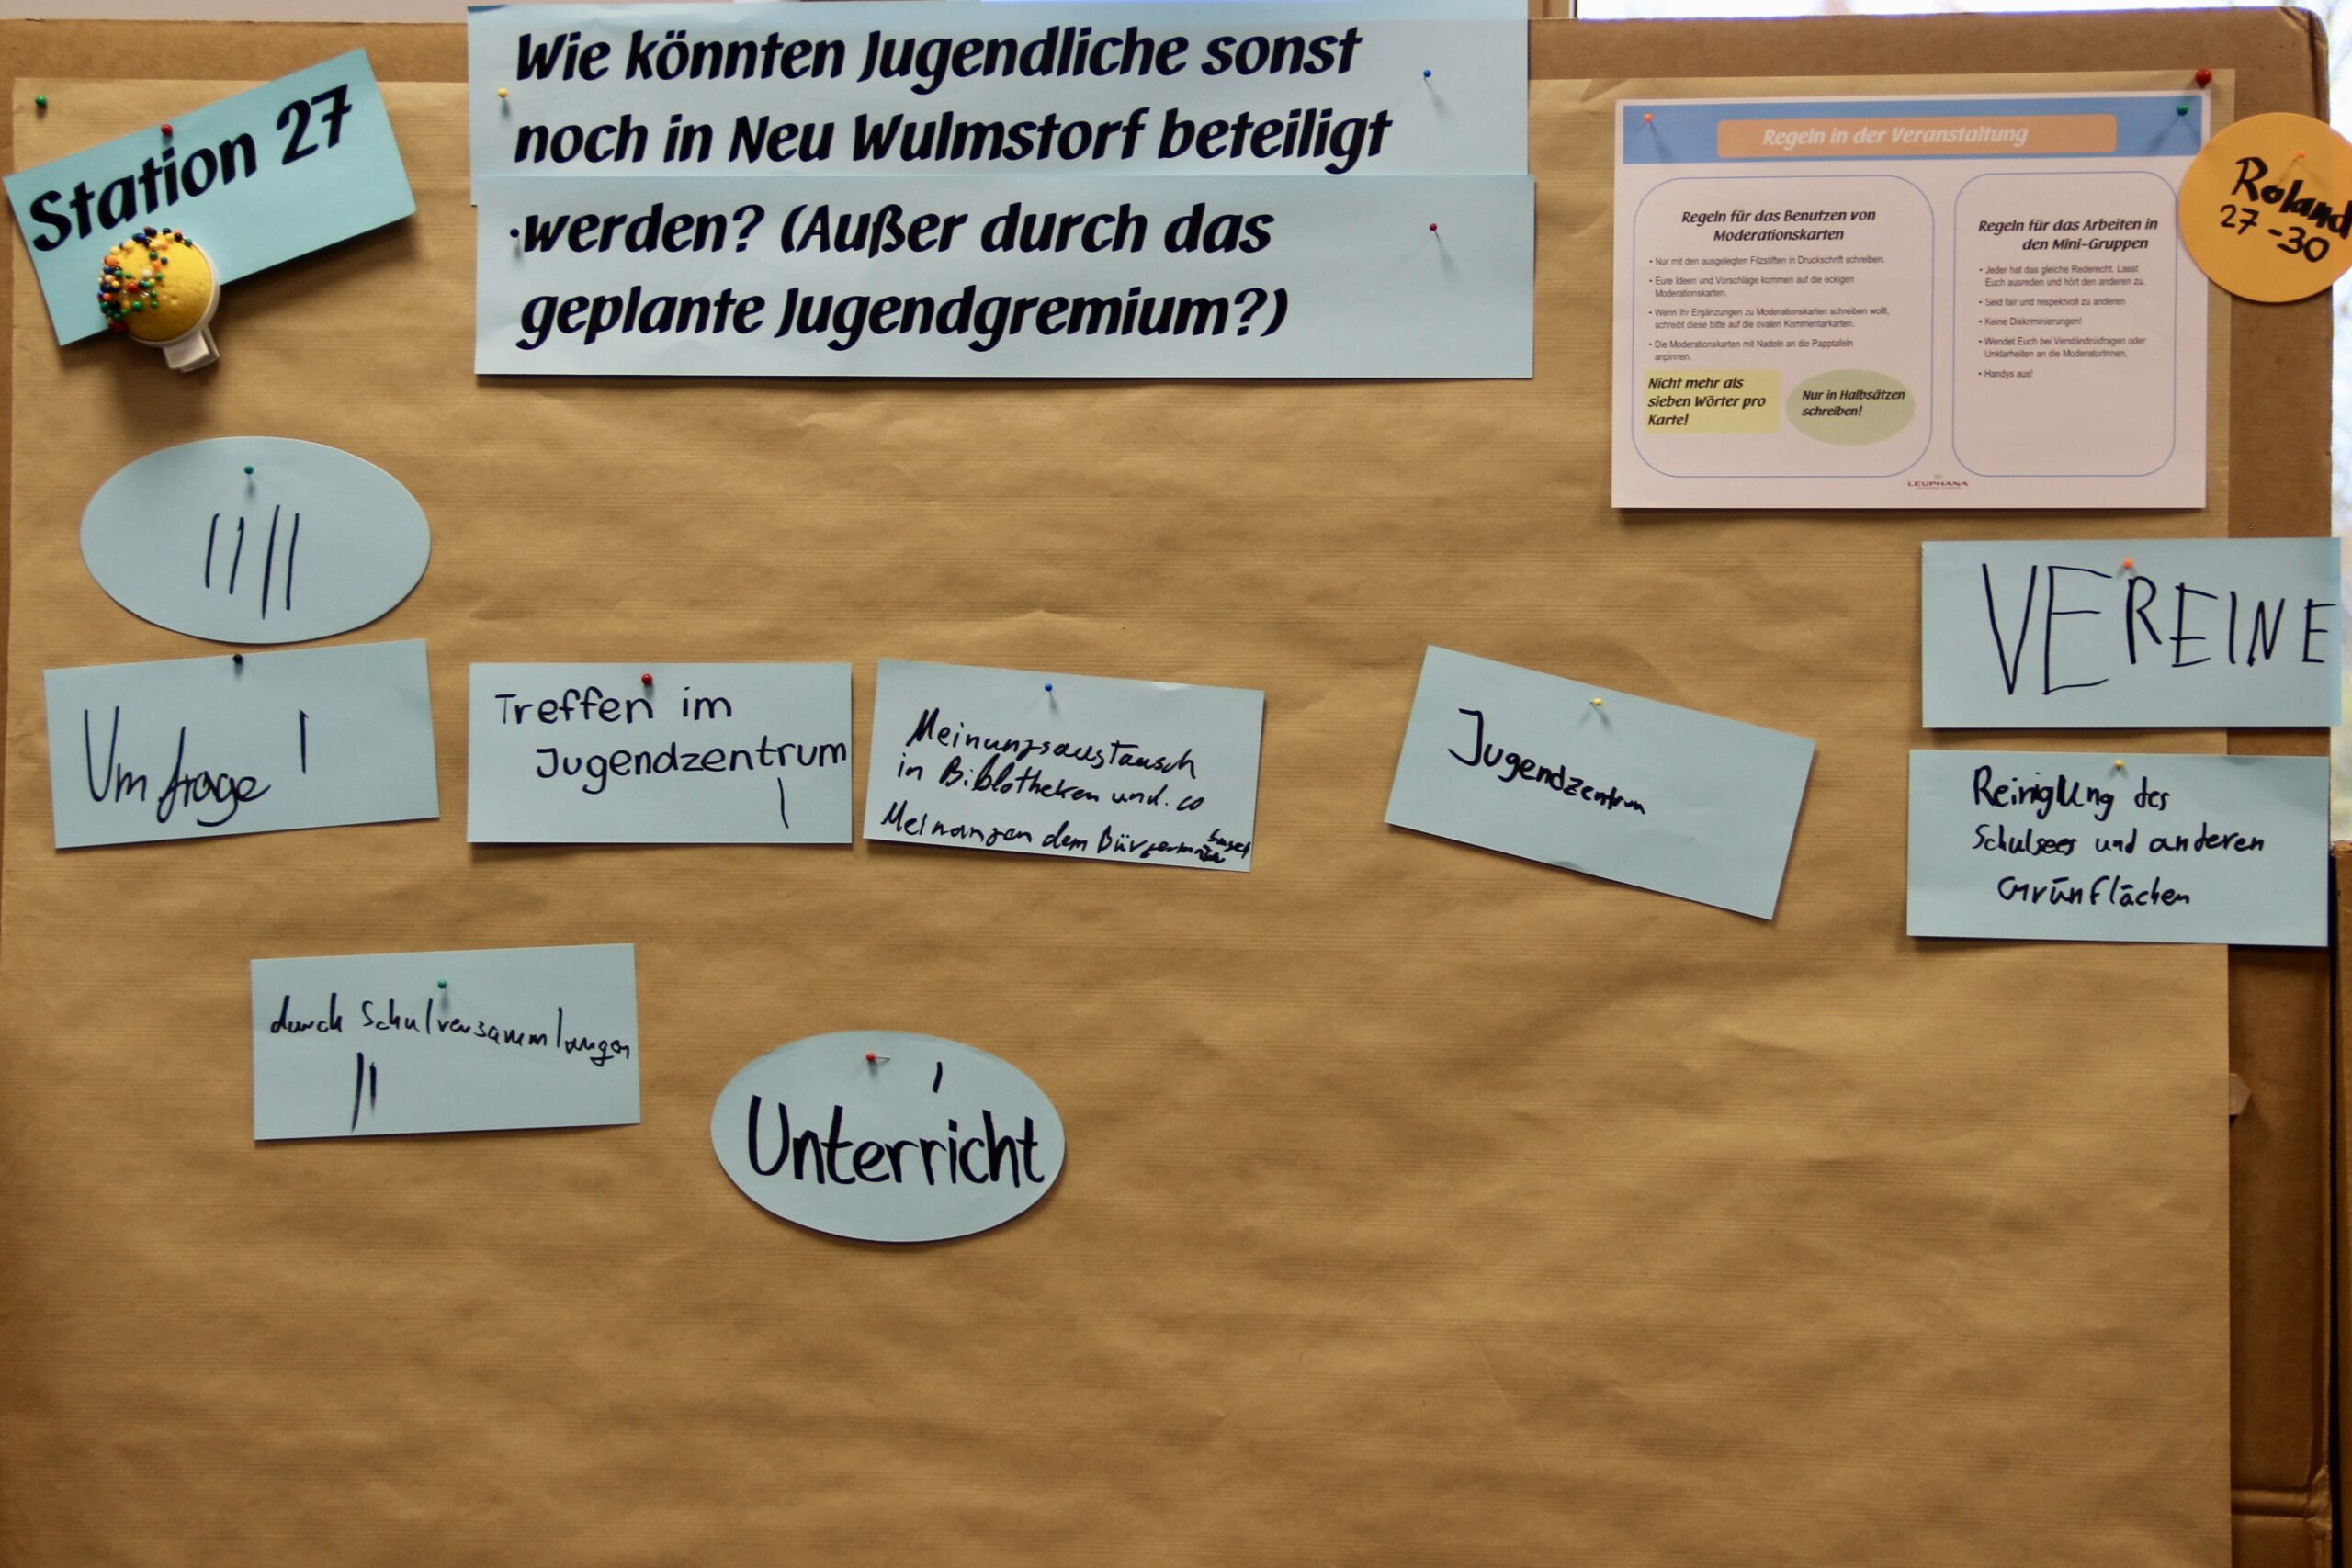 Station 27
Wie könnten Jugendliche sonst
noch in Neu Wulmstorf beteiligt
werden? (Außer durch das
geplante Jugendgremium?)
Regeln in der Veranstaltung
Regeln für das Benutzen von
Moderationskarten
• Nur mit den ausgelegten Filzstiften in Druckschrift schreiben.
• Eure Ideen und Vorschläge kommen auf die eckigen
Moderationskarten.
• Wenn Ihr Ergänzungen zu Moderationskarten schreiben wollt,
schreibt diese bitte auf die ovalen Kommentarkarten.
• Die Moderationskarten mit Nadeln an die Papptafeln
anpinnen.
Nicht mehr als
sieben Wörter pro
Karte!
Nur in Halbsätzen
schreiben!
Regeln für das Arbeiten in
den Mini-Gruppen
• Jeder hat das gleiche Rederecht. Lasst
Euch ausreden und hört den anderen zu.
• Seid fair und respektvoll zu anderen
• Keine Diskriminierungen!
• Wendet Euch bei Verständnisfragen oder
Unklarheiten an die ModeratorInnen.
• Handys aus!
LEUPHANA
Roland
27-30
||||
Umfrage |
Treffen im
Jugendzentrum
|
Meinungsaustausch
in Biblotheken und. co
Meinungen dem
Jugendzentrum
VEREINE
Reinigung des
Schulsees und anderen
Grünflächen
durch Schulversammlungen
||
|
Unterricht